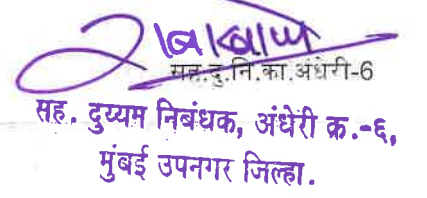 सह.दु.नि.का.अंधेरी-6
सह. दुय्यम निबंधक, अंधेरी क्र.-६,
मुंबई उपनगर जिल्हा.